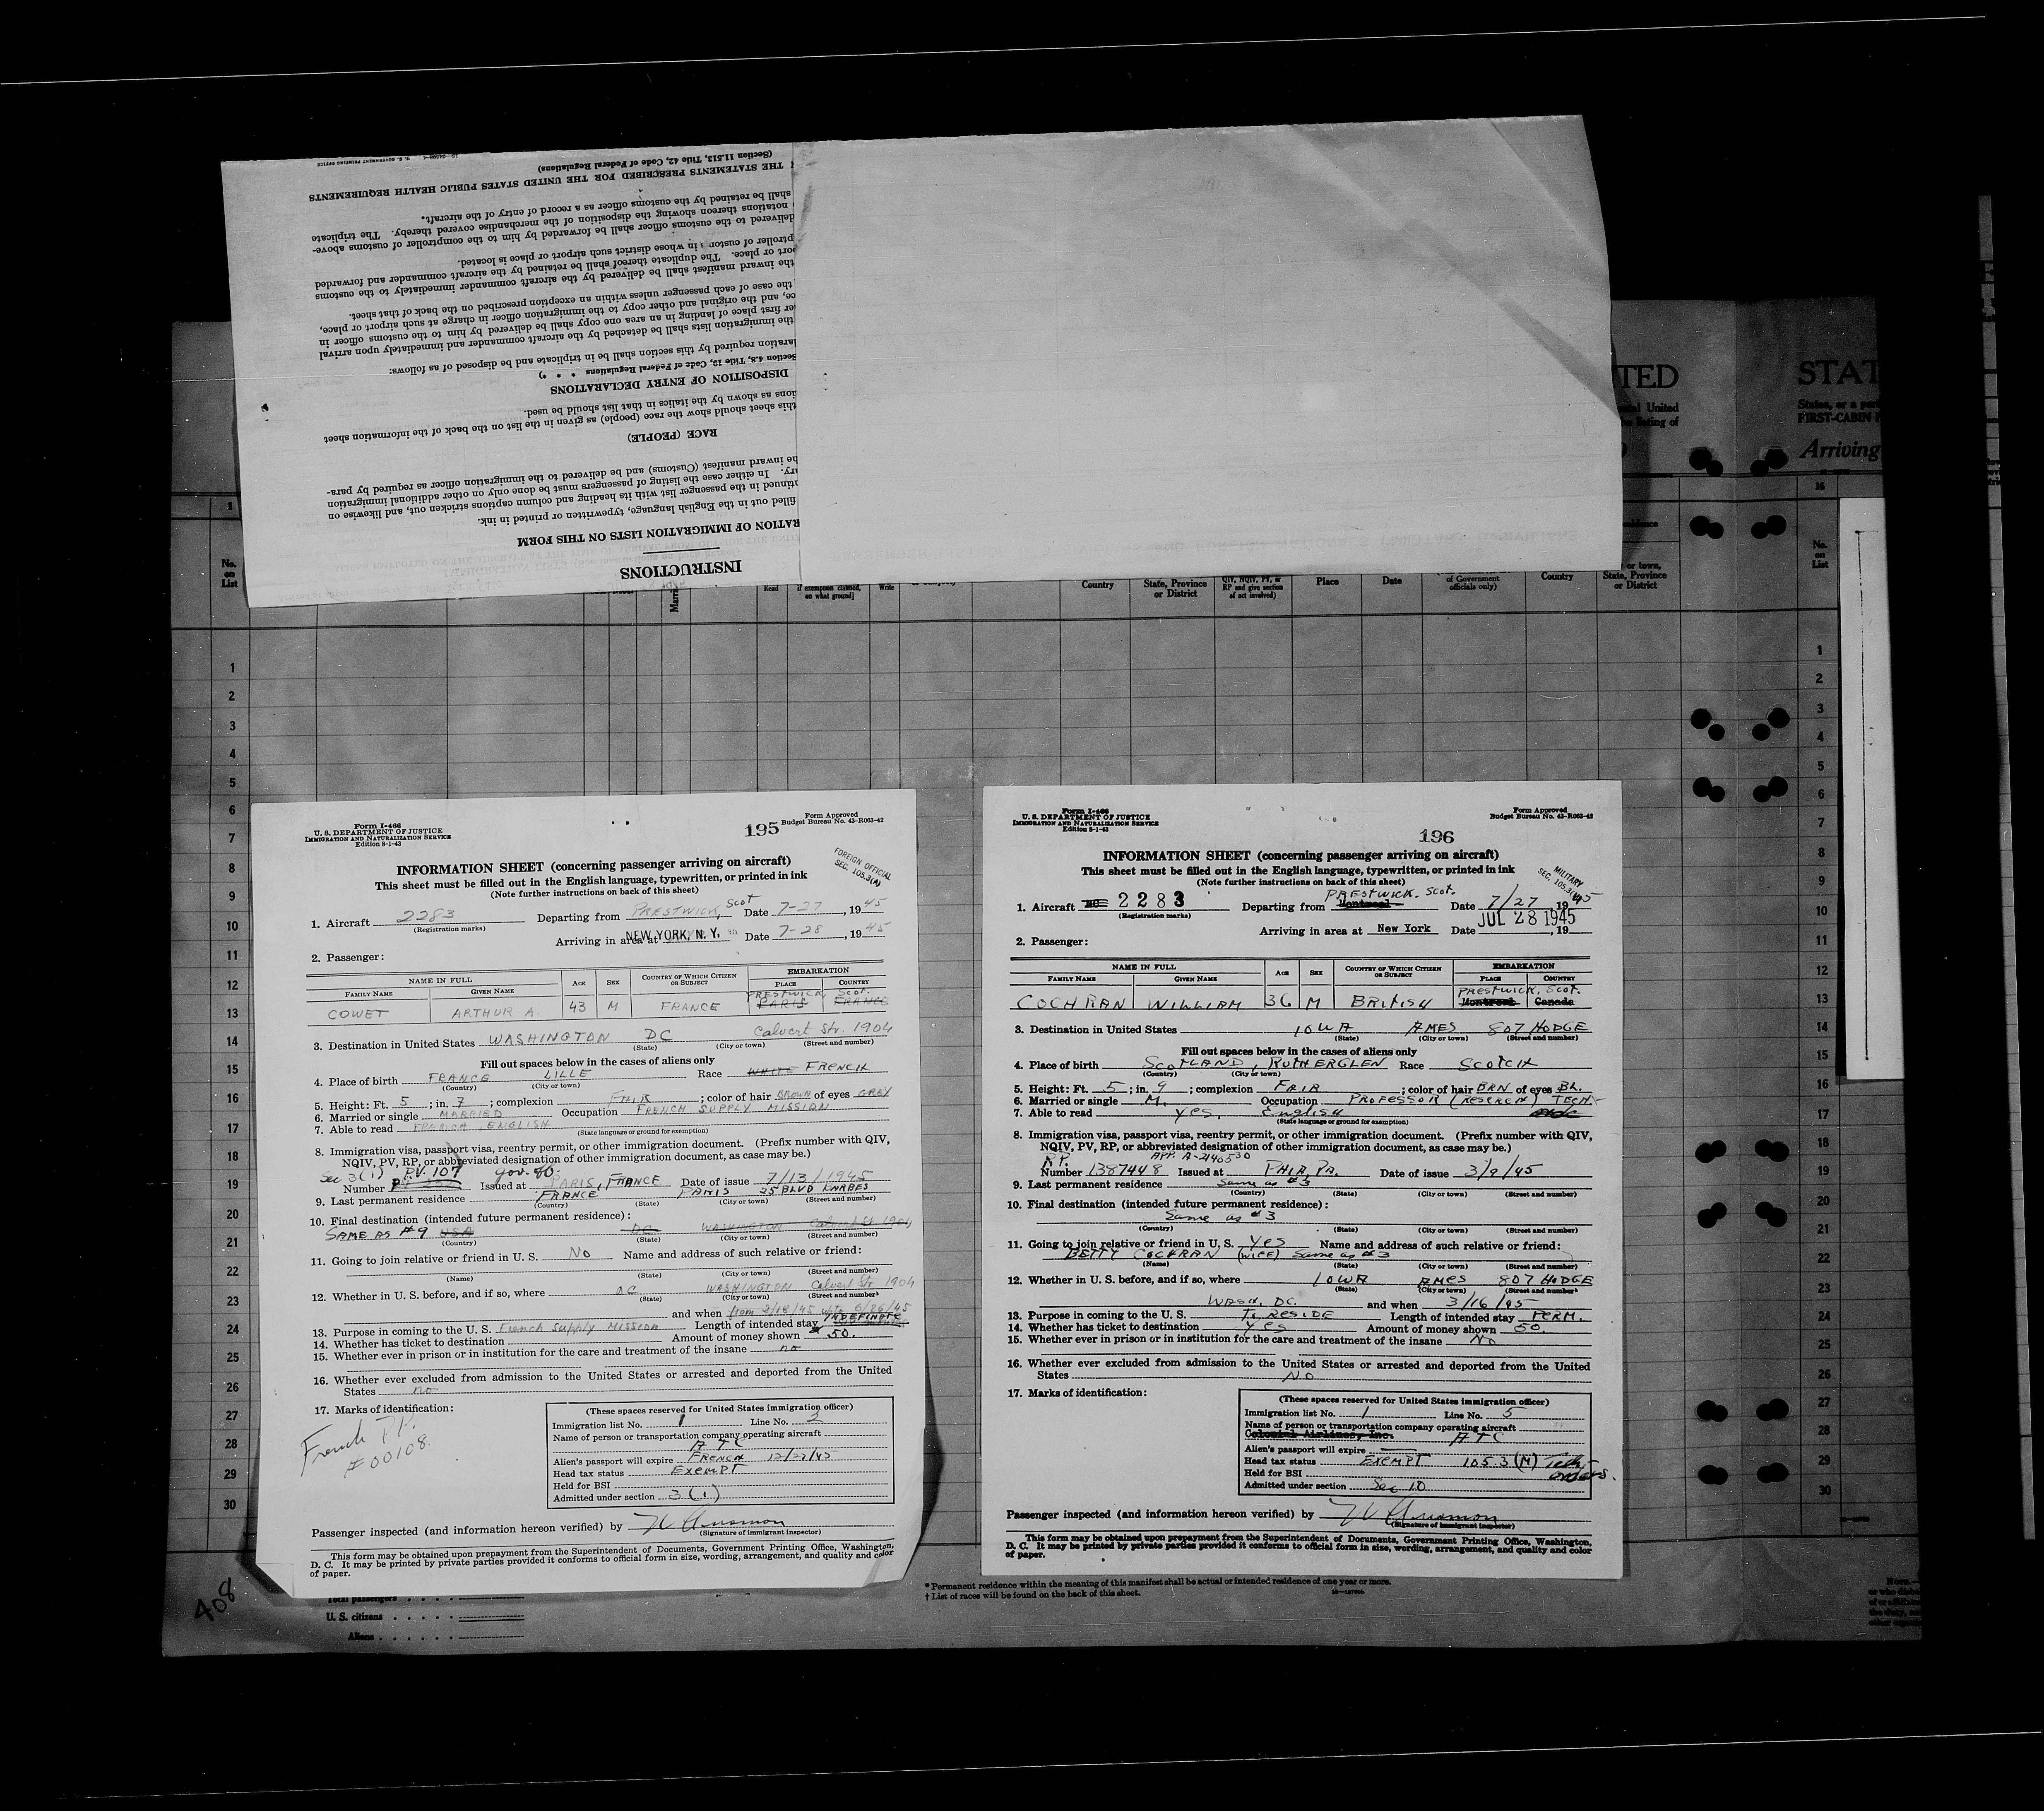 INSTRUCTIONS
RATION OF IMMIGRATION LISTS ON THIS FORM
filled out in the English language, typewritten or printed in ink.
tinued in the passenger list with its heading and column captions stricken out, and likewise on
ry. In either case the listing of passengers must be done only on other additional immigration
he inward manifest (Customs) and be delivered to the immigration officer as required by para-
RACE (PEOPLE)
this sheet should show the race (people) as given in the list on the back of the information sheet
ions as shown by the italics in that list should be used.
DISPOSITION OF ENTRY DECLARATIONS
Section 4.8, Title 19, Code of Federal Regulations * * *)
laration required by this section shall be in triplicate and be disposed of as follows:
the immigration lists shall be detached by the aircraft commander and immediately upon arrival
er first place of landing in an area one copy shall be delivered by him to the customs officer in
ce, and the original and other copy to the immigration officer in charge at such airport or place,
the case of each passenger unless within an exception prescribed on the back of that sheet.
the inward manifest shall be delivered by the aircraft commander immediately to the customs
port or place. The duplicate thereof shall be retained by the aircraft commander and forwarded
ptroller of customs in whose district such airport or place is located.
delivered to the customs officer shall be forwarded by him to the comptroller of customs above-
notations thereon showing the disposition of the merchandise covered thereby. The triplicate
shall be retained by the customs officer as a record of entry of the aircraft.*
THE STATEMENTS PRESCRIBED FOR THE UNITED STATES PUBLIC HEALTH REQUIREMENTS
(Section 11.513, Title 42, Code of Federal Regulations)
TED
STAT
States, or a
FIRST-CABIN
Arriving
No. on List
Read
if exemption claimed, on what ground]
Write
Country
State, Province or District
QIV, NQIV, PV, or RP and give section of act involved)
Place
Date
of Government officials only)
Country
or town, State, Province or District
16
No. on List
1
2
3
4
5
6
7
8
9
10
11
12
13
14
15
16
17
18
19
20
21
22
23
24
25
26
27
28
29
30
Form I-466
U. S. DEPARTMENT OF JUSTICE
IMMIGRATION AND NATURALIZATION SERVICE
Edition 8-1-43
195
Form Approved
Budget Bureau No. 43-R063-42
INFORMATION SHEET (concerning passenger arriving on aircraft)
This sheet must be filled out in the English language, typewritten, or printed in ink
(Note further instructions on back of this sheet)
FOREIGN OFFICIAL
SEC. 105.3(A)
1. Aircraft 2283 Departing from PRESTWICK, Scot Date 7-27, 1945
(Registration marks)
Arriving in area at NEW YORK, N. Y. Date 7-28, 1945
2. Passenger:
NAME IN FULL AGE SEX COUNTRY OF WHICH CITIZEN OR SUBJECT EMBARKATION
FAMILY NAME GIVEN NAME PLACE COUNTRY
PRESTWICK, Scot.
COWET ARTHUR A. 43 M FRANCE PARIS FRANCE
3. Destination in United States WASHINGTON DC Calvert Str. 1904
(State) (City or town) (Street and number)
Fill out spaces below in the cases of aliens only
4. Place of birth FRANCE LILLE Race WHITE FRENCH
(Country) (City or town)
5. Height: Ft. 5; in. 7; complexion FAIR; color of hair BROWN of eyes GREY
6. Married or single MARRIED Occupation FRENCH SUPPLY MISSION
7. Able to read FRENCH ENGLISH
(State language or ground for exemption)
8. Immigration visa, passport visa, reentry permit, or other immigration document. (Prefix number with QIV,
NQIV, PV, RP, or abbreviated designation of other immigration document, as case may be.)
Sec 3(1) P.V. 107 Gov. of.
Number Issued at PARIS, FRANCE Date of issue 7/13/1945
9. Last permanent residence FRANCE PARIS 25 BLVD BARBES
(Country) (State) (City or town) (Street and number)
10. Final destination (intended future permanent residence):
SAME AS #9 USA DC WASHINGTON Calvert St 1904
(Country) (State) (City or town) (Street and number)
11. Going to join relative or friend in U. S. NO Name and address of such relative or friend:
(Name) (State) (City or town) (Street and number)
12. Whether in U. S. before, and if so, where DC WASHINGTON Calvert Str 1904
(State) (City or town) (Street and number)
and when from 2/18/45 upto 6/26/45
13. Purpose in coming to the U. S. French Supply Mission Length of intended stay INDEFINITE
14. Whether has ticket to destination Amount of money shown 50.
15. Whether ever in prison or in institution for the care and treatment of the insane no
16. Whether ever excluded from admission to the United States or arrested and deported from the United
States no
17. Marks of identification:
French P.P.
# 00108.
(These spaces reserved for United States immigration officer)
Immigration list No. 1 Line No. 2
Name of person or transportation company operating aircraft
ATC
Alien's passport will expire FRENCH 12/27/45
Head tax status EXEMPT
Held for BSI
Admitted under section 3(1)
Passenger inspected (and information hereon verified) by
(Signature of immigrant inspector)
This form may be obtained upon prepayment from the Superintendent of Documents, Government Printing Office, Washington,
D. C. It may be printed by private parties provided it conforms to official form in size, wording, arrangement, and quality and color
of paper.
Form I-466
U. S. DEPARTMENT OF JUSTICE
IMMIGRATION AND NATURALIZATION SERVICE
Edition 8-1-43
196
Form Approved
Budget Bureau No. 43-R063-42
INFORMATION SHEET (concerning passenger arriving on aircraft)
This sheet must be filled out in the English language, typewritten, or printed in ink
(Note further instructions on back of this sheet)
MILITARY
SEC. 105.3(M)
1. Aircraft NC 2283 Departing from Montreal PRESTWICK. Scot. Date 7/27, 1945
(Registration marks)
Arriving in area at New York Date JUL 28 1945, 19
2. Passenger:
NAME IN FULL AGE SEX COUNTRY OF WHICH CITIZEN OR SUBJECT EMBARKATION
FAMILY NAME GIVEN NAME PLACE COUNTRY
PRESTWICK, Scot.
COCHRAN WILLIAM 36 M BRITISH Montreal Canada
3. Destination in United States IOWA AMES 807 HODGE
(State) (City or town) (Street and number)
Fill out spaces below in the cases of aliens only
4. Place of birth SCOTLAND, RUTHERGLEN Race SCOTCH
(Country) (City or town)
5. Height: Ft. 5; in. 9; complexion FAIR; color of hair BRN of eyes BL.
6. Married or single M. Occupation PROFESSOR (RESEARCH) TECH.
7. Able to read Yes. English
(State language or ground for exemption)
8. Immigration visa, passport visa, reentry permit, or other immigration document. (Prefix number with QIV,
NQIV, PV, RP, or abbreviated designation of other immigration document, as case may be.)
R.P. APP. A-2140530
Number 1387448 Issued at PHIA, PA. Date of issue 3/9/45
9. Last permanent residence Same as #3
(Country) (State) (City or town) (Street and number)
10. Final destination (intended future permanent residence):
Same as #3
(Country) (State) (City or town) (Street and number)
11. Going to join relative or friend in U. S. Yes Name and address of such relative or friend:
BETTY COCHRAN (WIFE) Same as #3
(Name) (State) (City or town) (Street and number)
12. Whether in U. S. before, and if so, where IOWA AMES 807 HODGE
(State) (City or town) (Street and number)
WASH. DC. and when 3/16/45
13. Purpose in coming to the U. S. To RESIDE Length of intended stay PERM.
14. Whether has ticket to destination Yes Amount of money shown 50.
15. Whether ever in prison or in institution for the care and treatment of the insane No
16. Whether ever excluded from admission to the United States or arrested and deported from the United
States NO
17. Marks of identification:
(These spaces reserved for United States immigration officer)
Immigration list No. 1 Line No. 5
Name of person or transportation company operating aircraft
Colonial Airlines, Inc. ATC
Alien's passport will expire
Head tax status EXEMPT 105.3 (M)
Held for BSI
Admitted under section Sec 10
Passenger inspected (and information hereon verified) by
(Signature of immigrant inspector)
This form may be obtained upon prepayment from the Superintendent of Documents, Government Printing Office, Washington,
D. C. It may be printed by private parties provided it conforms to official form in size, wording, arrangement, and quality and color
of paper.
* Permanent residence within the meaning of this manifest shall be actual or intended residence of one year or more.
† List of races will be found on the back of this sheet.
408
Total passengers
U. S. citizens
Aliens